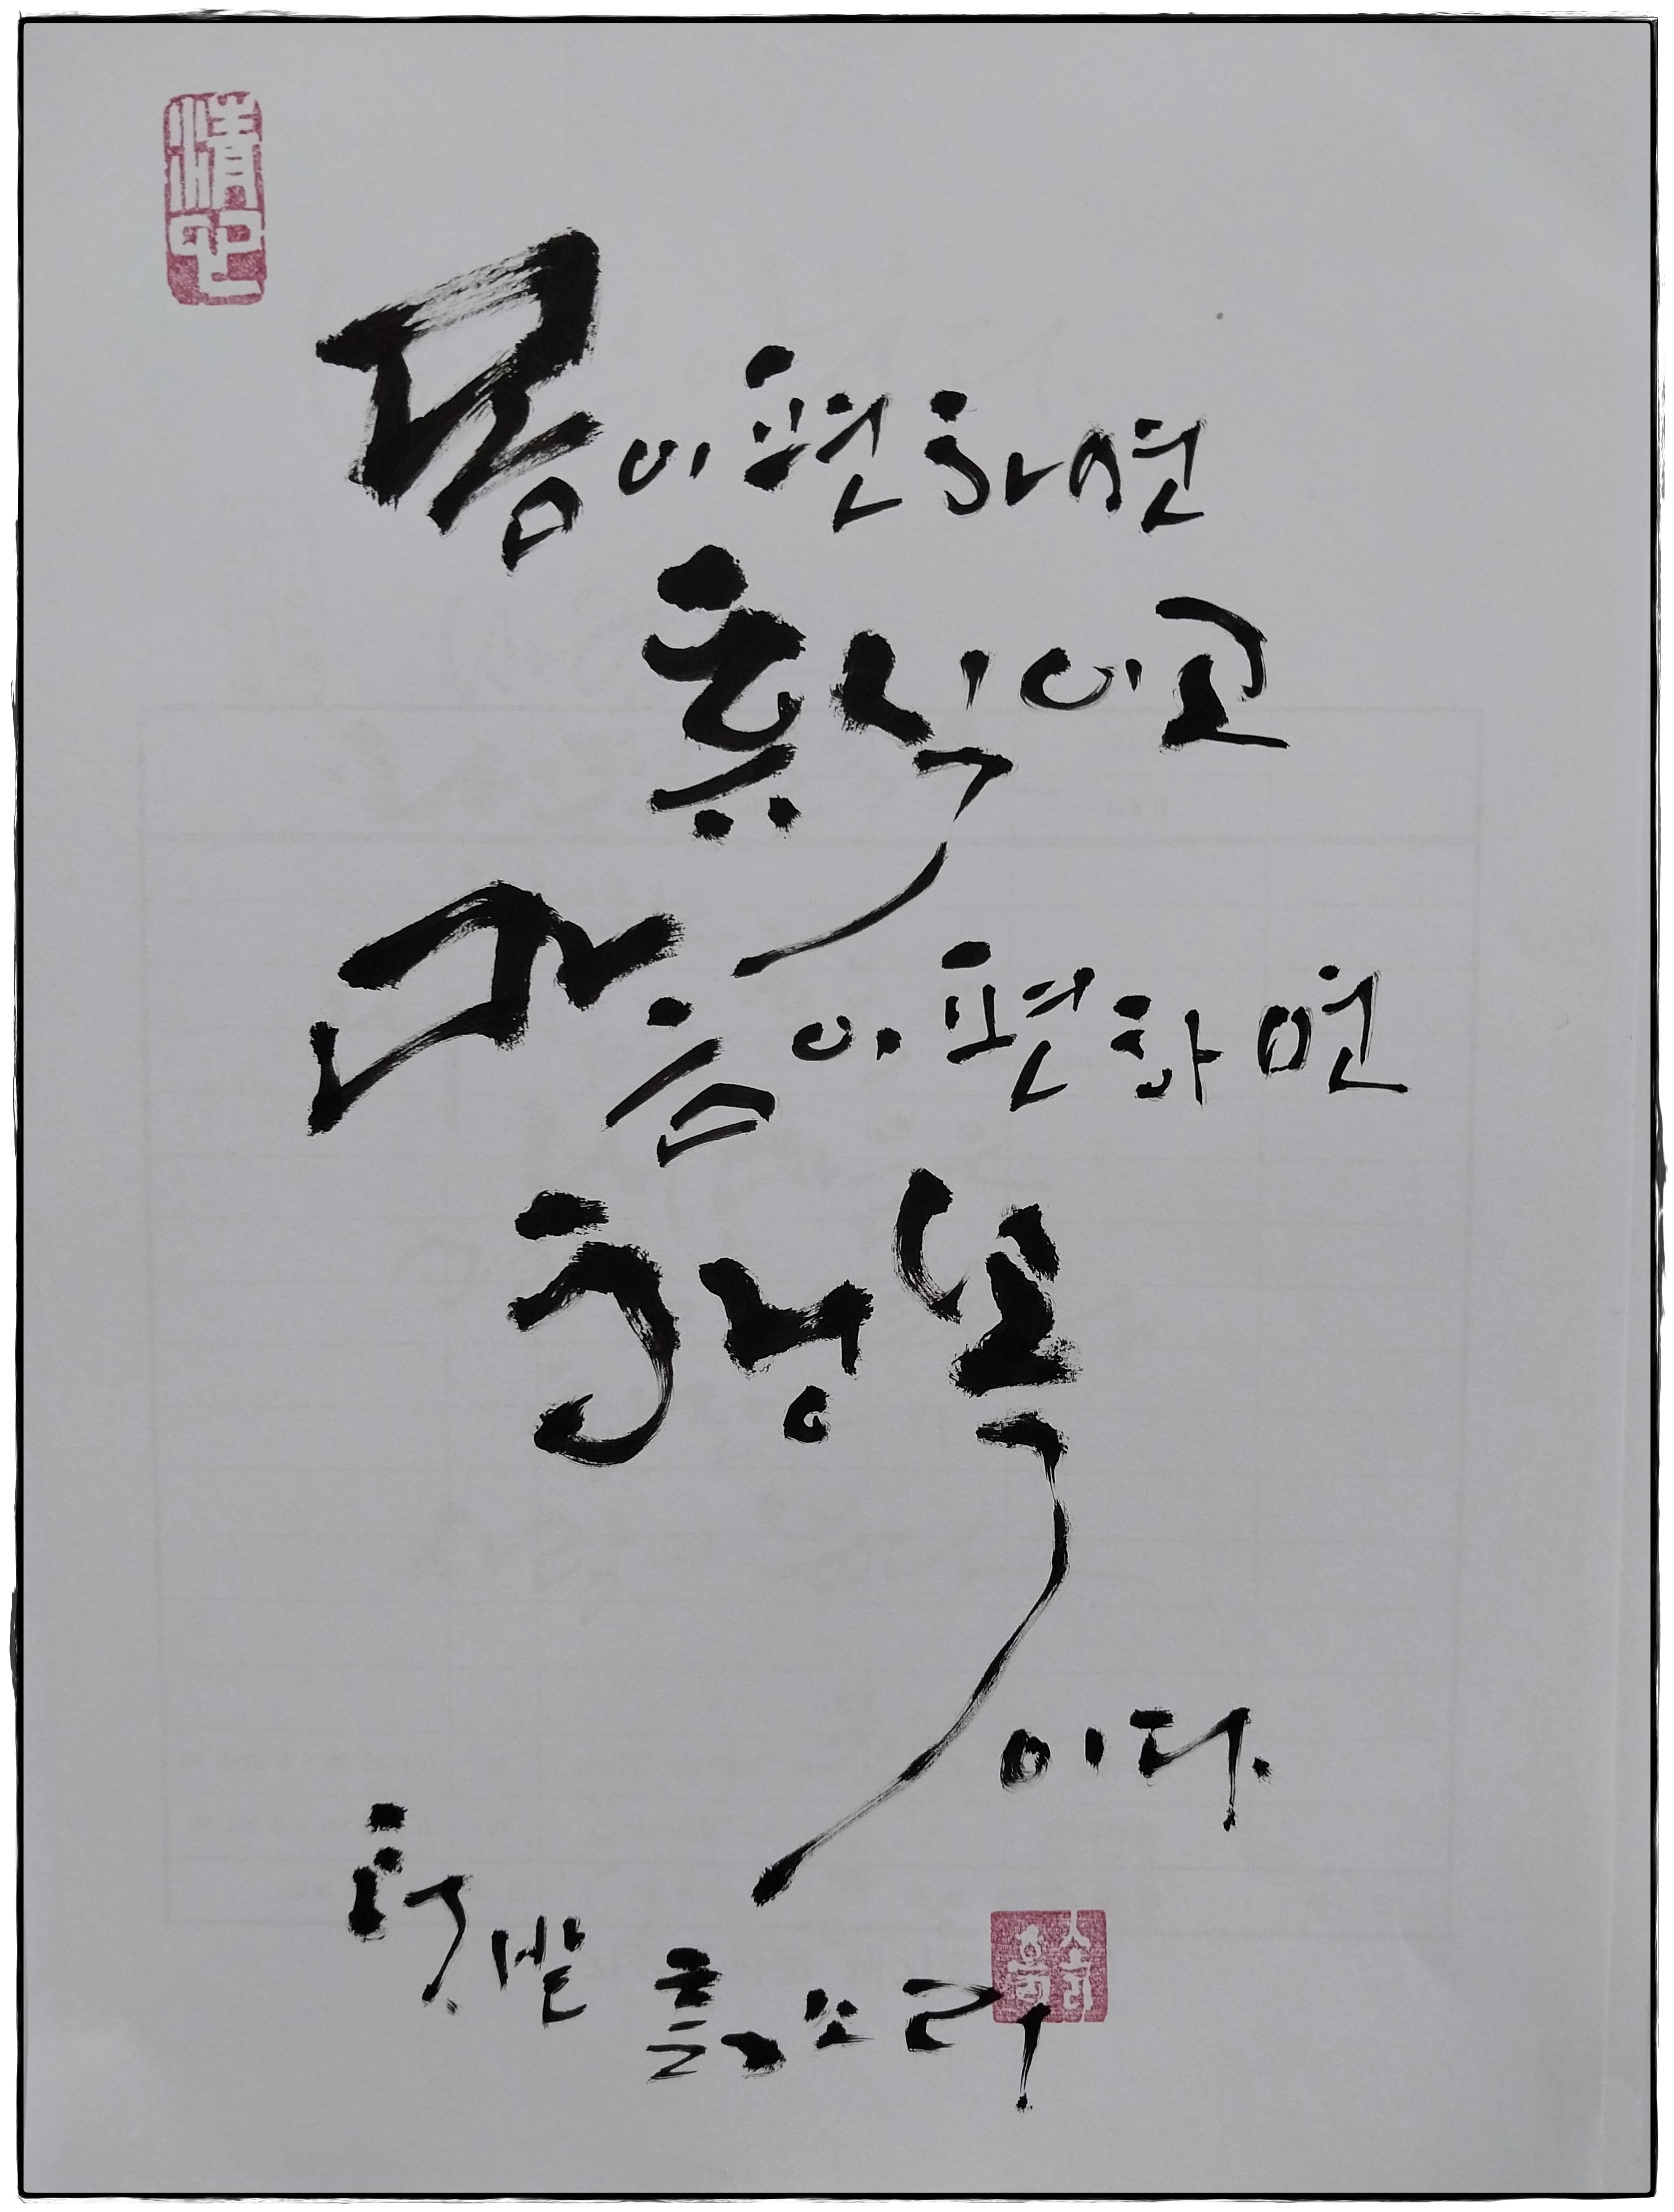 清心
몸이 편하면
휴식이고
마음이 편하면
행복
이다.
흙소리
흙소리